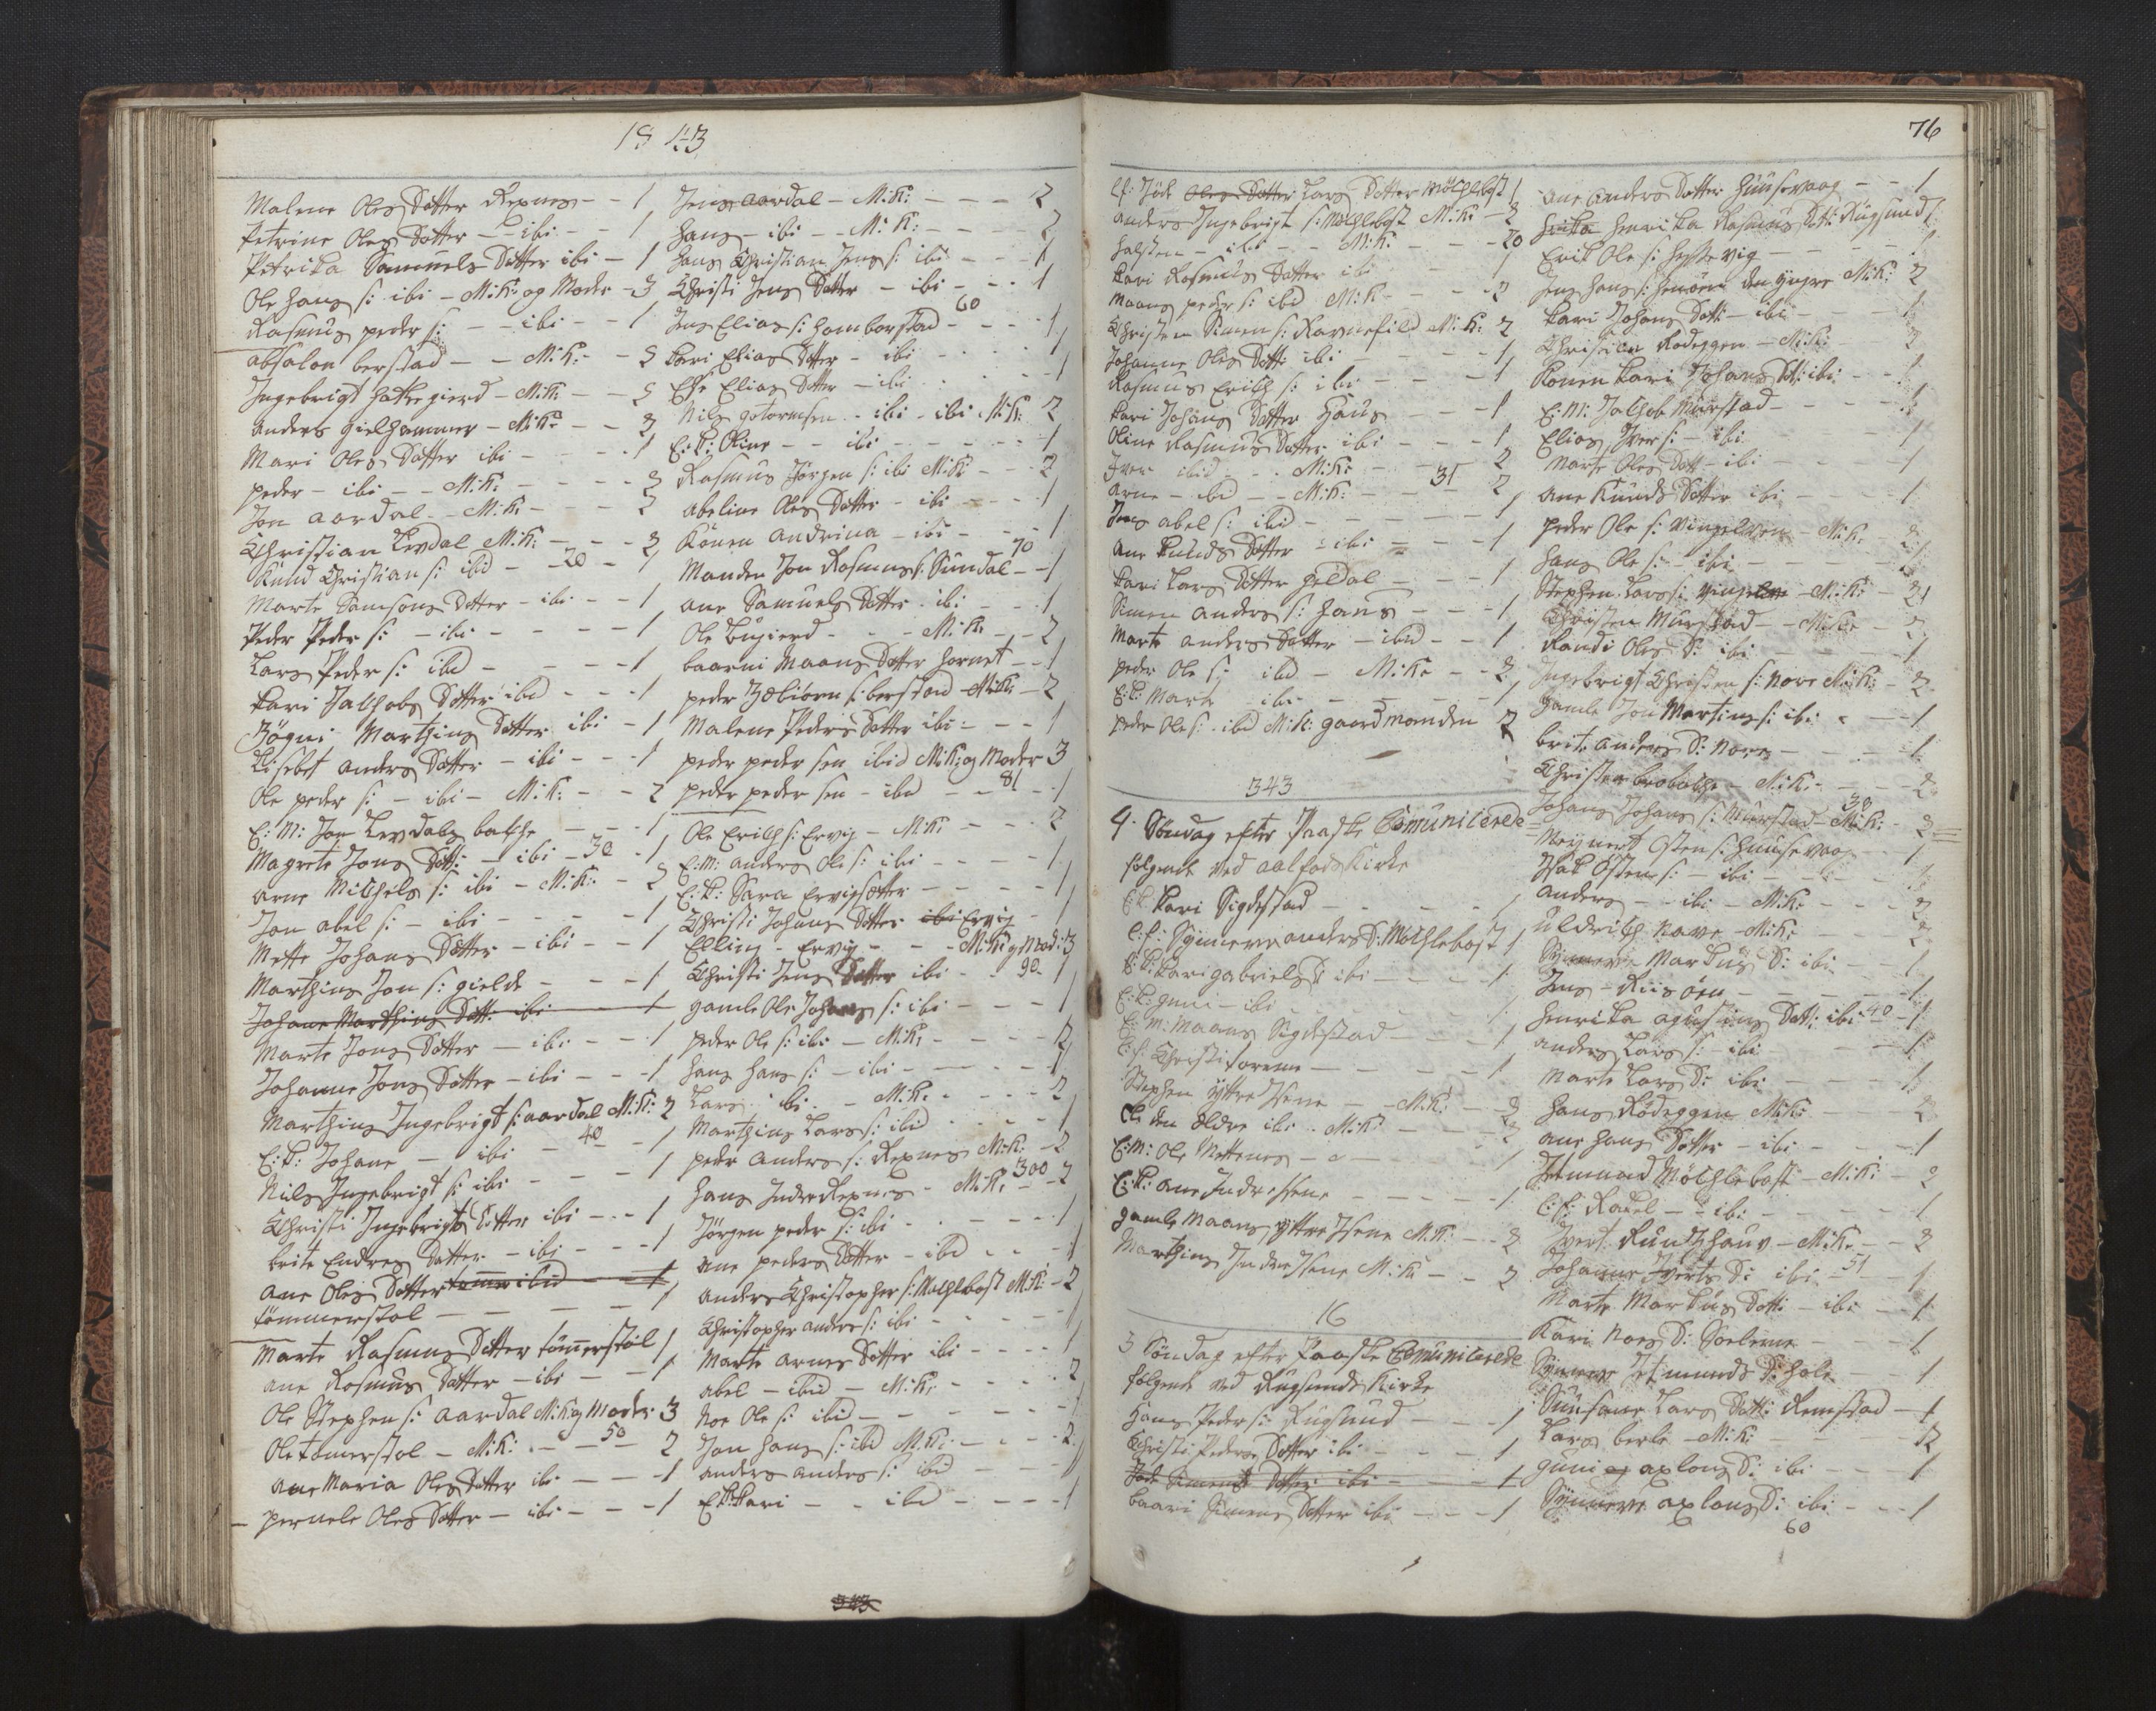 1843
Malene Oles Datter Repnes - - 1
Petrine Oles Datter - ibi - - 1
Petrika Samuels Datter ibi - 1
Ole Hans s: ibi - M:K: og Moder - 3
Rasmus peder s: - - ibi - - 1
absalon berstad - - M:K: - - 2
Ingebrigt Hattegierd - M:K: - - 2
anders Gielhammer - M:K: - - 2
Mari Oles Datter ibi - - - 1
peder - ibi - - M:K: - - - 2
Jon aardal - M:K: - - - 2
Christian Levdal M:K: - - - 2
Knud Christian s: ibid - 20 - 1
Marte Samsons Datter - ibi - - 1
Peder Peder s: - ibi - - - 1
Lars Peder s: ibid - - - - 1
Kari Jakobs Datter ibid - - - 1
Bögni Marthins Datter ibi - 1
Lisebet anders Datter - ibi - - 1
Ole peder s: - ibi - M:K: - - 2
E: M: Jon Levdals balche - - - 1
Magrete Jons Dott: - ibi - 30 - 1
arne Michels s: ibi - M:K: - 2
Jon abel s: - ibi - - - - 1
Mette Johans Datter - ibi - - 1
Marthins Jon s: gielde - - - 1
Johane Marthins Dott: ibi - 1
Marte Jons Datter - ibi - - 1
Johanne Jons Datter - ibi - - - 1
Marthins Ingebrigt s: aardal M:K: 2
E: K: Johane - ibi - 40 - 1
Nils Ingebrigt s: ibi - - - 1
Christi Ingebrigts Datter ibi - - 1
brite Endres Datter - ibi - - - 1
ane Oles Datter ibid - - 1
tömmerstol - - - - 1
Marte Rasmus Datter tömerstol 1
ane Rasmus Datter - ibi - - 1
Ole Stephen s: aardal M:K: og Moder 3
Ole tomerstol - M:K: - - 50 - 2
ane Maria Oles Datter ibi - - - 1
pernele Oles Datter - ibi - - - 1
Jens aardal - M:K: - - - 2
Hans - ibi - - M:K: - - - 2
Hans Christian Jens s: ibi - - - 1
Christi Jens Datter - ibi - - - 1
Jens Elias s: Homborstad - 60 - - 1
Kari Elias Datter - ibi - - - 1
Else Elias Datter - ibi - - - 1
Nils gotormsen - ibi - ibi M:K: 2
E: K: Oline - - ibi - - - - 1
Rasmus Jörgen s: ibi M:K: - - 2
abeline Oles Datter - ibi - - - 1
Konen andrina - ibi - - - 1
Manden Jon Rasmus s: Sundal - 70 - 1
ane Samuels Datter ibi - - - 1
Ole Bugierd - - M:K: - - 2
baarni Maans Datter Hornet - - 1
peder s: berstad M:K: - 2
Malene Peders Datter ibi - - - 1
peder peder sen ibid M:K: og Moder 3
peder peder sen - ibid - - 81 - 1
Ole Erich s: Ervig - M:K: - - - 2
E: M: anders Ole s: ibi - - - - 1
E: K: Sara Ervigsætter - - - - 1
Christi Johans Datter ibi Ervig - 1
Elling - Ervig - - - M:K: og Mod: 3
Christi Jens Datter ibi - - 90 - 1
gamle Ole Johans s: ibi - - - 1
peder Ole s: ibi - M:K: - - - - 2
Hans Hans s: - ibi - - - - 1
Lars ibi - - M:K: - - - - 2
Marthins Lars s: ibid - - - - 1
peder anders s: Repnes M:K: - 2
Hans Indre Repnes - M:K: 300 - 2
Jörgen peder s: ibi - - - - 1
ane peders Datter - ibid - - - 1
anders Christopher s: Möchlebost M:K: - 2
Christopher anders s: ibi - - - - 1
Marte arnes Datter ibi - - - - 1
abel - ibid - M:K: - - - - 2
Noe Ole s: ibid - - - - - - 1
Jon Hans s: ibid M:K: - - - 2
anders anders s: ibid - - - 1
E: K: Kari - - ibid - - - - 1
343
76
E: K: Jöde Oles Datter Lars Datter Möchlebost 1
anders Ingebrigt s: Möchlebost M:K: - 2
Halsten - ibi - - M:K: - - - 20
Kari Rasmus Datter ibi - - - 1
Maans peder s: ibid M:K - - - 2
Christen Simen s: Ravnefild M:K: 2
Johanne Oles Dott: ibi - - - - 1
Rasmus Erich s: ibi - - - - 1
Kari Johans Datter Haus - - - 1
Oline Rasmus Datter ibi - - - 1
Iver ibid - - M:K: - - - - 2
arne - ibid - - M:K: - - 31 - 2
Jens abel s: ibid - - - - - 1
ane Knuds Datter - ibi - - - 1
Kari Lars Datter Heldal - - - - 1
Simen anders s: Haus - - - 1
Marte anders Datter - ibid - - 1
peder Ole s: ibid - M:K: - - 2
E: K: Marte - ibi - - - - - 1
peder Ole s: - ibid M:K: gaardmanden 2
343
4. Söndag efter Paaske Comunicerede
følgende ved aalfods Kirke
E: K: Kari Sigdestad - - - - 1
E: K: Synneve anders D: Möchlebost 1
E: K: Kari gabriels D: ibi - - - - 1
E: K: guni - ibi - - - - 1
E: M: Maans Sigdestad - - - - 1
E: K: Christi foreme - - - - 1
Stephen yttre Isene - - M:K: - - 2
Ole den Eldre ibi - M:K: - - - 2
E: M: Ole Mettenes - - - - 1
E: K: ane Indre Isene - - - - - 1
gamle Maans yttre Isene M:K: - - 2
Marthins Indre Isene M:K: - - 2
16
3 Söndag efter Paaske Comunicerede
følgende ved Rugsunds Kirke
Hans Peder s: Rugsund - - - 1
Christi Peders Datter ibi - - - 1
Jode Simens Datter ibi - - - 1
baari Simens Datter ibi - - - 1
ane anders Datter Huusevaag - - 1
Henrika Rasmus Dot: Rugsund 1
Erik Ole s: Hestevig - - - 1
Jens Hans s: den yngre M:K: 2
Kari Johans Dott: - ibi - - - - 1
Christian Rodeggen - M:K: - - 2
Konen Kari Johans Dot: ibi - - 1
E: M: Jachob Murstad - - - - 1
Elias Iver s: - ibi - - - 1
Marte Oles Dott: - ibi - - - 1
ane Knuds Datter ibi - - - 1
peder Ole s: Vingelven - M:K: - 2
Hans Ole s: - ibi - - - - 1
Stephen Lars s: - M:K: - 21
Christen Murstad - - M:K: - 2
Randi Oles D: ibi - - - - - 1
Ingebrigt Christen s: Nore M:K: - 2
gamle Jon Martins s: ibi - - - 1
brite anders D: Nore - - - - 1
Christen - M:K: - - - 2
Johans Johans s: Murstad 30 M:K: - 2
Meynert Osten s: Huusevaag - - 1
Isak Osten s: - ibi - - - - 1
anders - - ibi - M:K: - - - 2
uldrich Nave - M:K: - - - - 2
Synneve Markus D: ibi - - - 1
Jens - Riisöen - - - - - 1
Henrika agustins Dott: ibi - 40 - 1
anders Lars s: - ibi - - - 1
Marte Lars D: ibi - - - - 1
Hans Rödeggen M:K: - - - 2
ane Hans Datter - ibi - - - 1
Jetmund Möchlebost - M:K: - 2
E: K: Rakel - - ibi - - - - 1
Ivert - M:K: - - 2
Johanne Iverts D: ibi - 51 - 1
Marte Markus Dott: - ibi - - 1
Kari Noes D: - - 1
Synneve Jetmunds D: Hole - - 1
Susane Lars Dott: Remstad - 1
Lars berle - M:K: - - - - 2
guni axlons D: ibi - - - 1
Synneve axlons D: ibi - - - 1
60